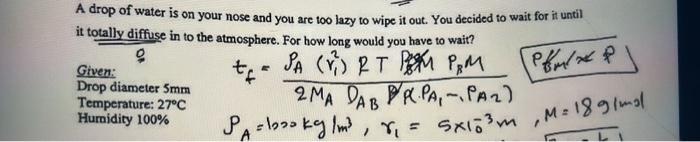 A drop of water is on your nose and you are too lazy to wipe it out. You decided to wait for it until
it totally diffuse in to the atmosphere. For how long would you have to wait?
Given:
Drop diameter 5mm
Temperature: 27°C
Humidity 100%
t_f = ρ_A (r₁²) R T P_BM
2 M_A D_AB P (P_A1 - P_A2)
P_BM ≈ P
ρ_A = 1000 kg/m³, r₁ = 5×10⁻³ m, M = 18 g/mol